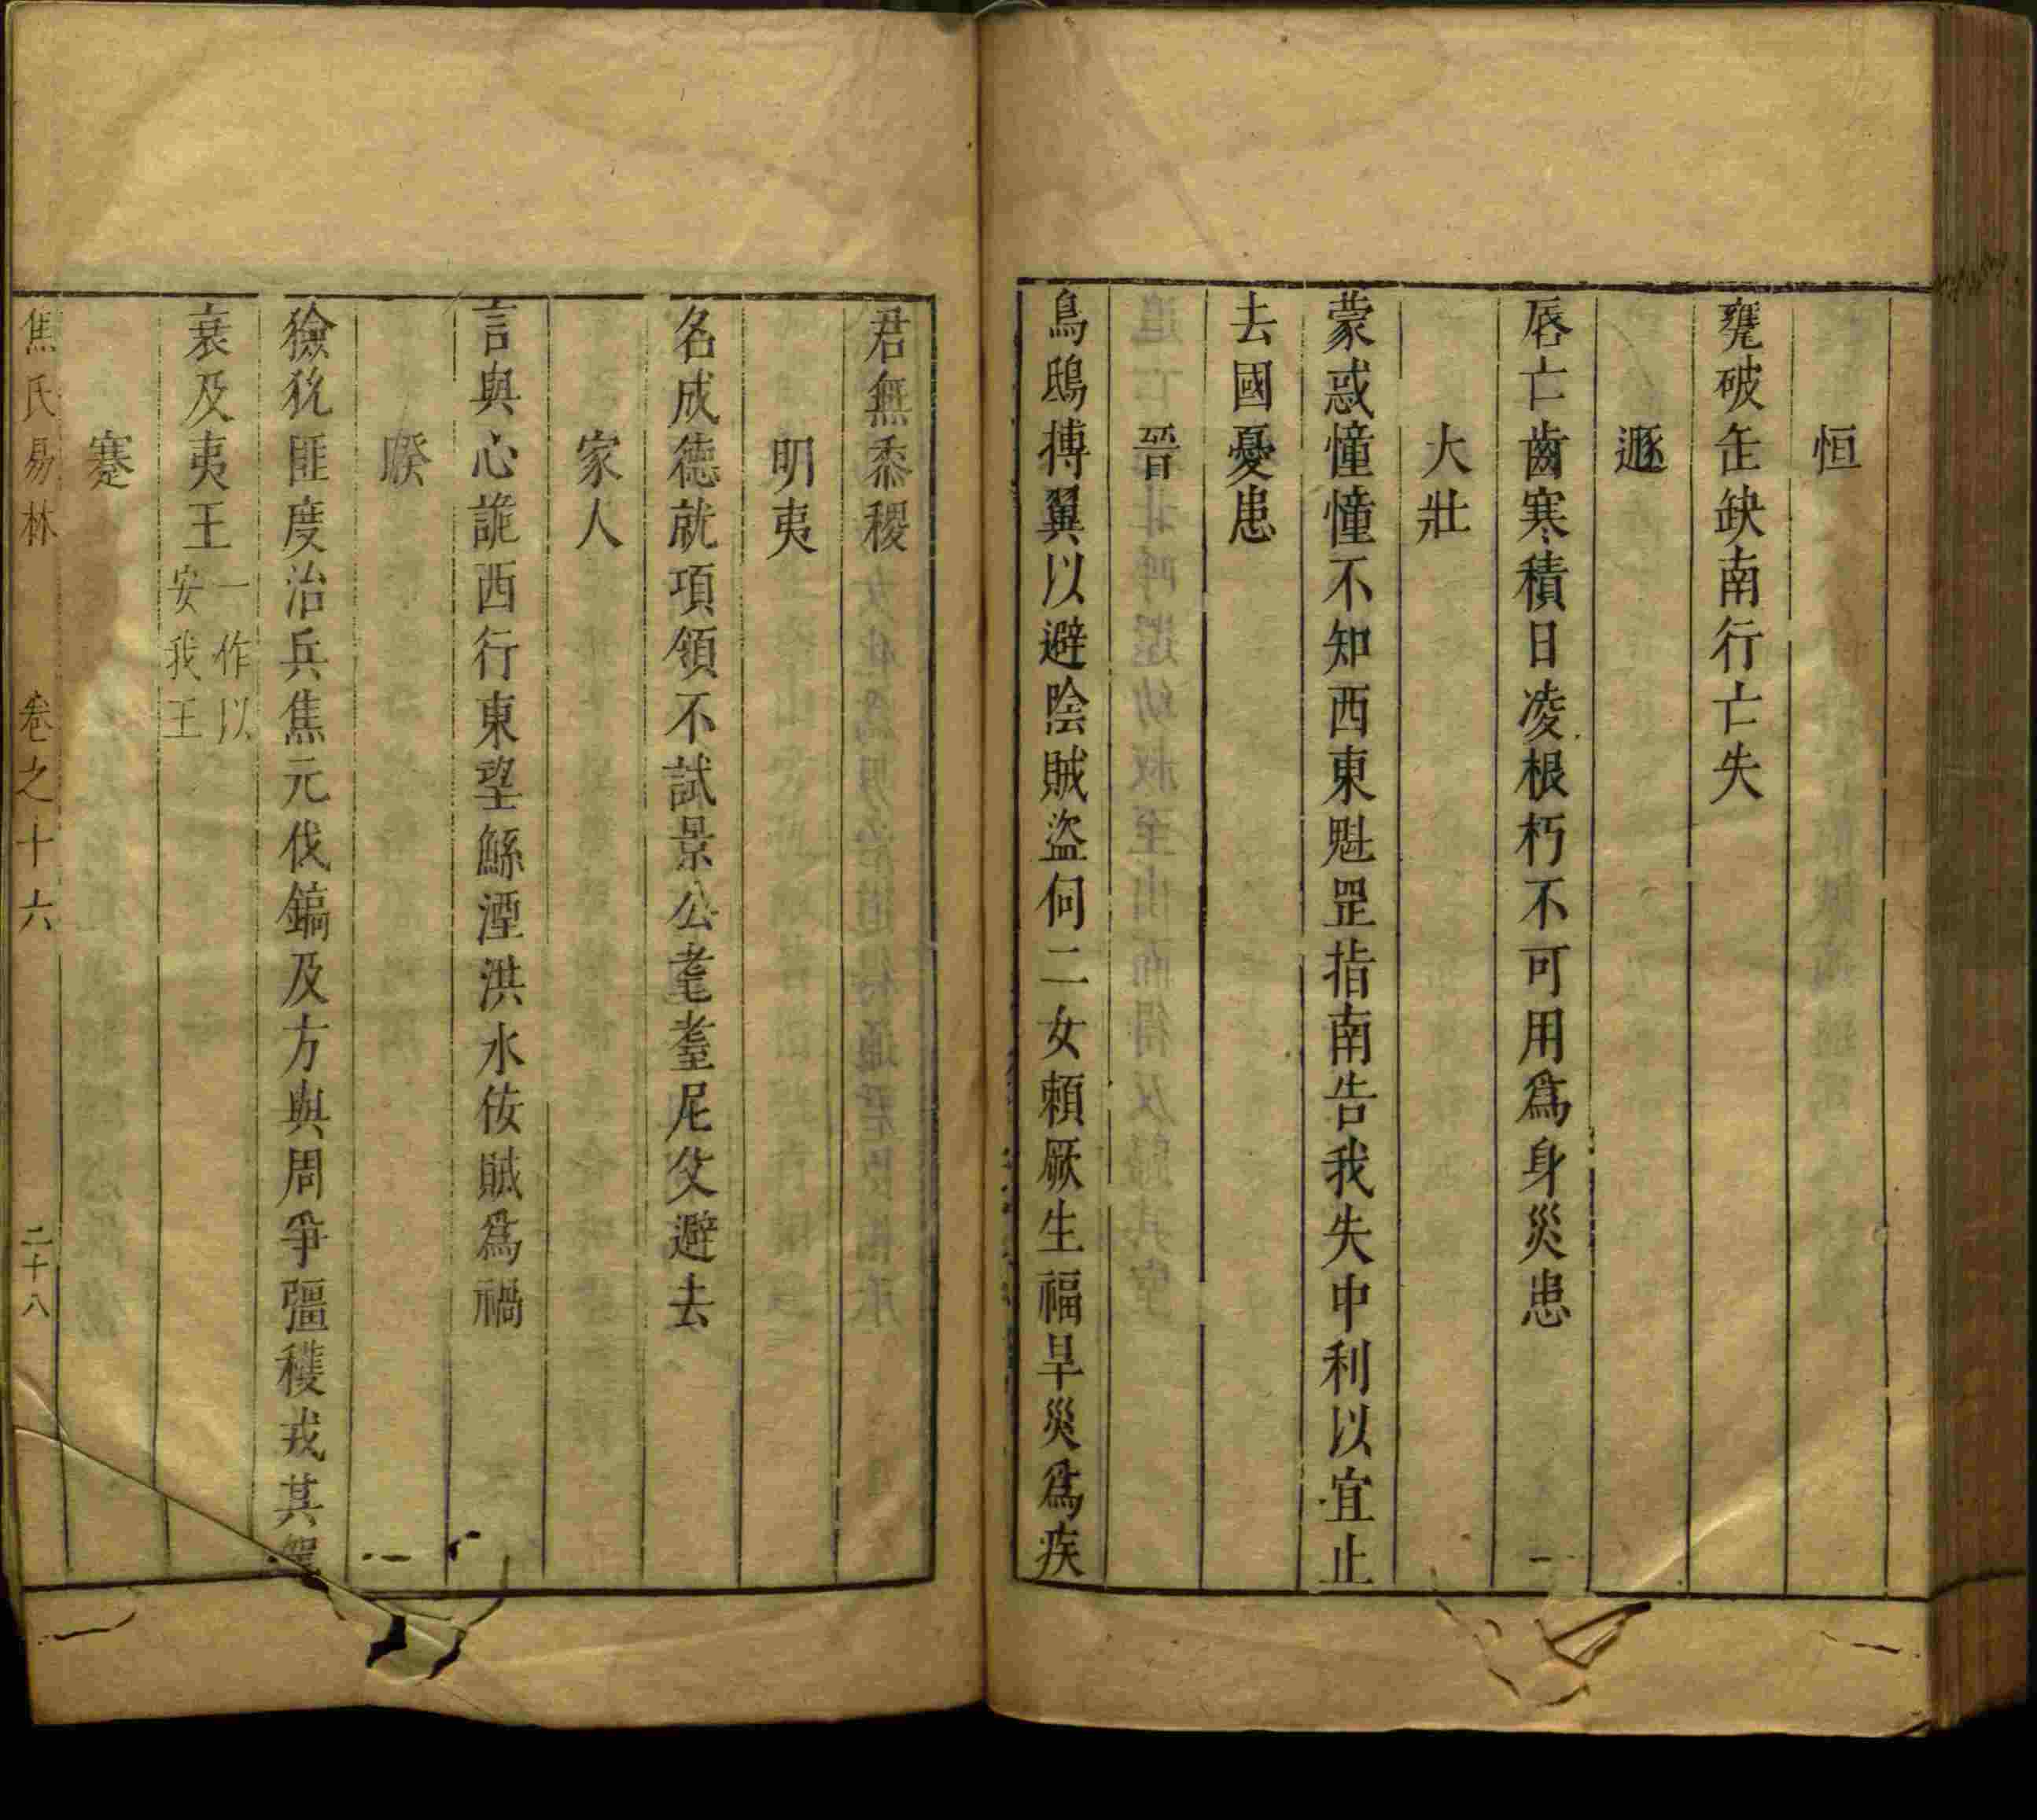 恒
甕破缶缺南行亡失
遯
唇亡齒寒積日凌根朽不可用爲身災患
大壯
蒙惑憧憧不知西東魁罡指南告我失中利以宜止
去國憂患
晉
鳥鴟搏翼以避陰賊盜伺二女賴厥生福旱災爲疾
君無黍稷
明夷
名成德就項領不試景公耄耋尼父避去
家人
言與心詭西行東望鯀湮洪水佞賊爲禍
睽
獫狁匪度治兵焦元伐鎬及方與周爭彊穫戎其駕
衰及夷王一作以安我王
蹇
焦氏易林 卷之十六 二十八